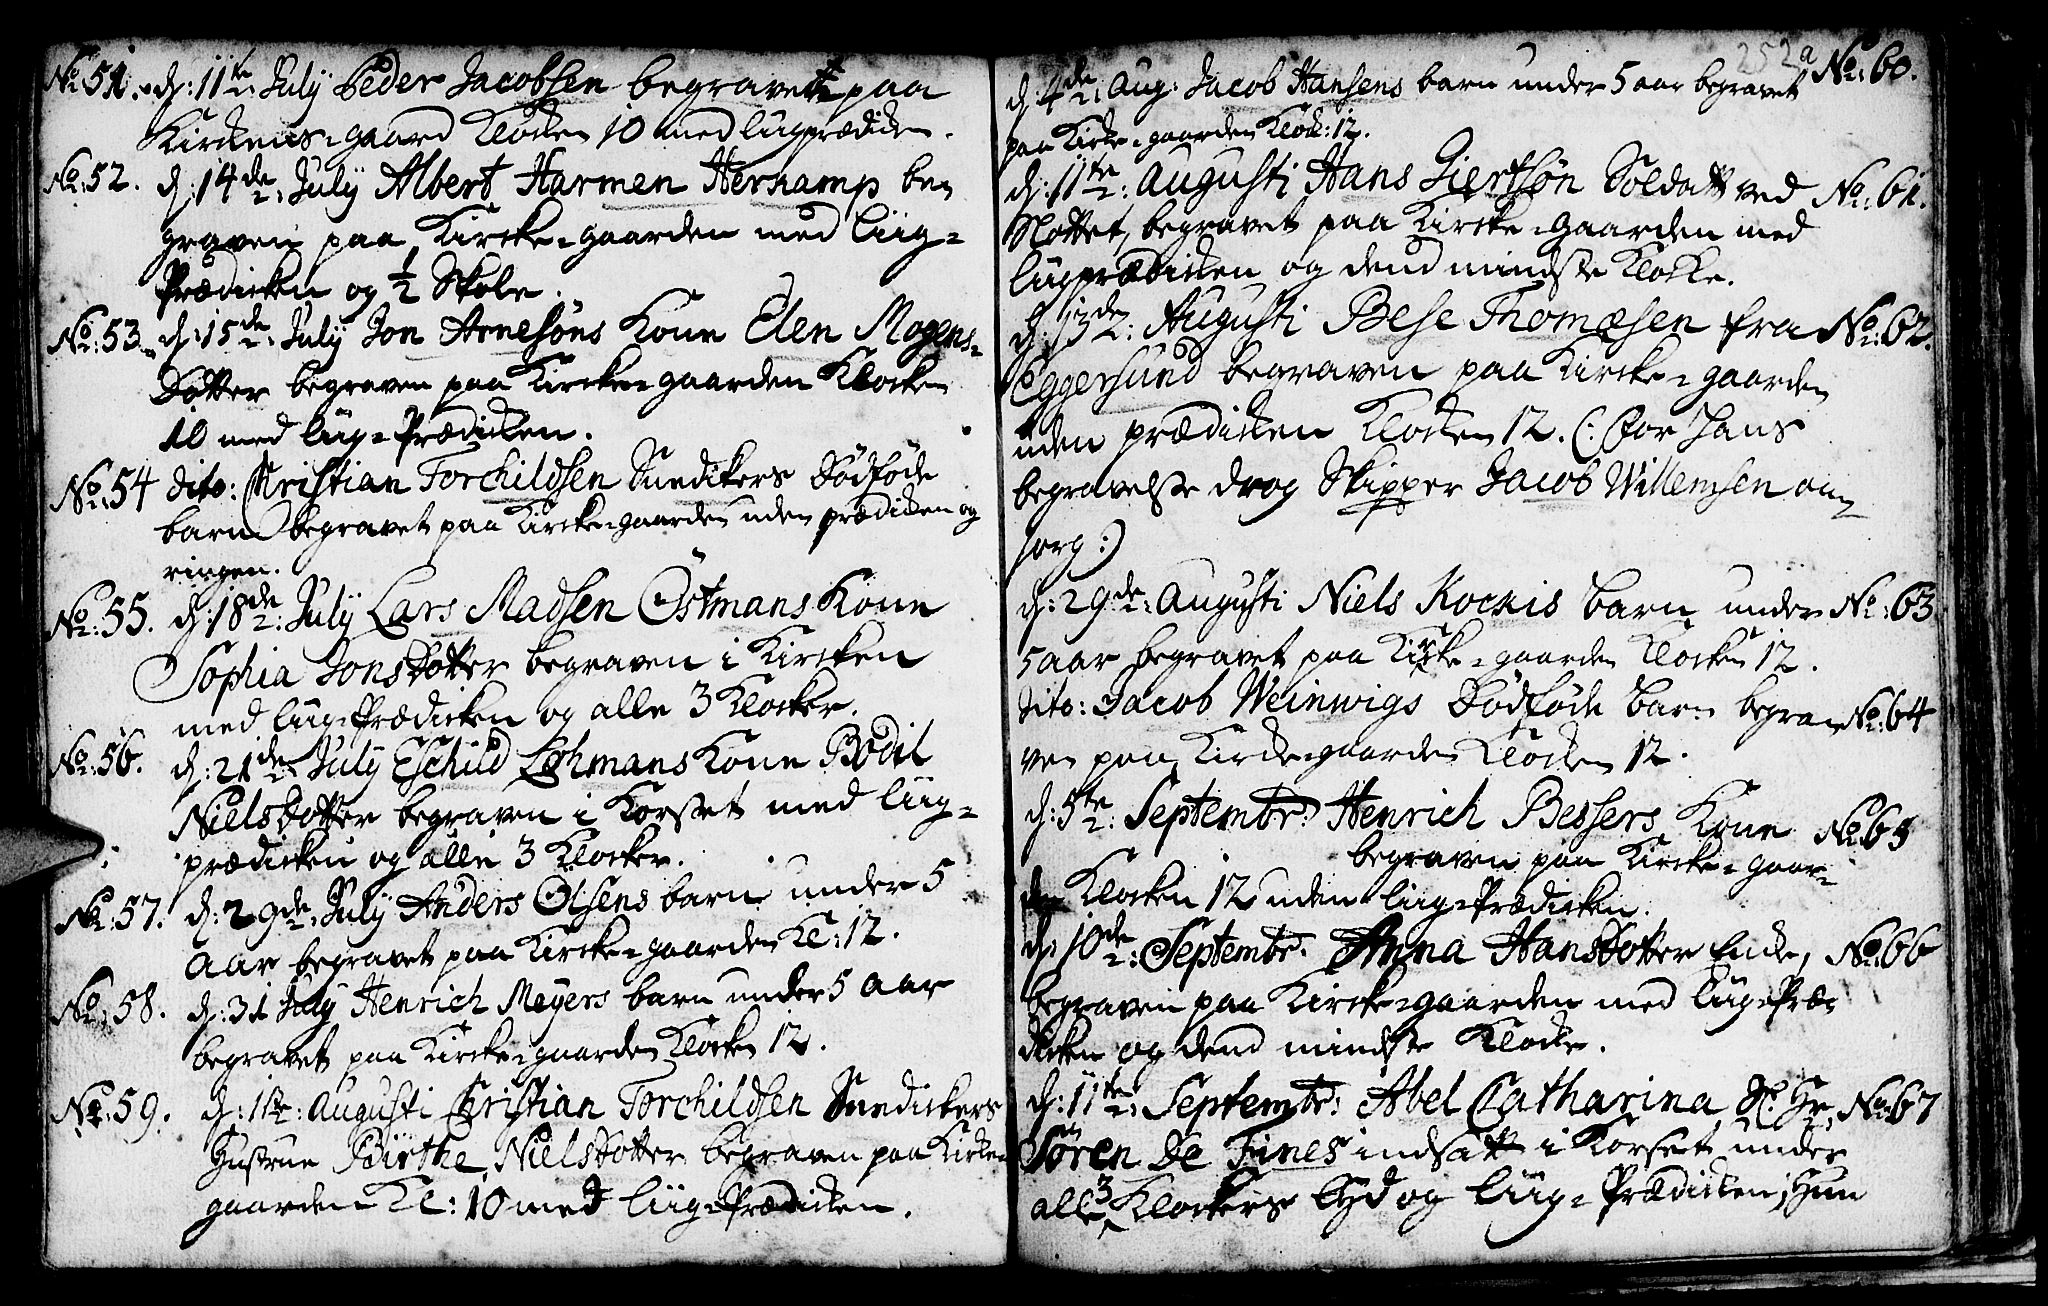 No: 51. d: 11te July Peder Jacobsen begravett paa
Kirckens-gaard Klocken 10 med liigprædicken.
No: 52. d: 14de July Albert Harmen Herkamp be-
graven paa Kircke-gaarden med Liig-
Prædicken og 1/2 Skole.
No: 53. d: 15de July Jon Arnesøns Kone Elen Mogens-
Dotter begraven paa Kircke-gaarden Klocken
10 med liig-Prædicken.
No: 54 dito: Christian Torchildsen Snedikers Dödföde
barn begravet paa Kircke-gaarden uden prædicken og
ringen.
No: 55. d: 18de July Lars Madsen Östmans Kone
Sophia Jonsdotter begraven i Kircken
med liig-Prædicken og alle 3 Klocker.
No: 56. d: 21de July Eschild Lohmans Kone Bodil
Nielsdotter begraven i Korset med liig-
prædicken og alle 3 Klocker.
No: 57. d: 29de July Anders Olsens barn under 5
Aar begravet paa Kircke-gaarden Kl: 12.
No: 58. d: 31 July Henrich Meyers barn under 5 aar
begravet paa Kircke-gaarden Klocken 12.
No: 59. d: 1te: Augusti Christian Torchildsen Snedickers
Hustrue Birthe Nielsdotter begraven paa Kircke
gaarden Kl: 10 med Liig-Prædicken.
252a
d: 4de Aug: Jacob Hansens barn under 5 aar begravet No: 60.
paa Kircke-gaarden Klock: 12.
d: 11te: Augusti Hans Giertsøn Soldatt ved No: 61.
Slottet, begravet paa Kircke-gaarden med
liigprædicken og dend mindste Klocke.
d: 13de: Augusti Bese Thomæsen fra No: 62.
Eggersund begraven paa Kircke-gaarden
uden prædicken Klocken 12. (: For Hans
begravelse drog Skipper Jacob Willemsen om-
sorg :)
d: 29de: Augusti Niels Kockis barn under No: 63
5 aar begravet paa Kircke-gaarden Klocken 12.
dito: Jacob Weinwigs Dödföde barn begra- No: 64
ven paa Kircke-gaarden Klocken 12.
d: 5te: Septembr: Henrich Bessers Kone No: 65
begraven paa Kircke-gaar-
den Klocken 12 uden liig-Prædicken.
d: 10de: Septembr. Anna Hansdotter Encke, No: 66
begraven paa Kircke-gaarden med liig-Præ-
dicken og dend mindste Klocke.
d: 11te: Septembr: Abel Catharina Sl. Hr. No: 67
Sören De Fines indsatt i Korset, under
alle 3 Klockers Lyd og Liig-Prædicken; Hun